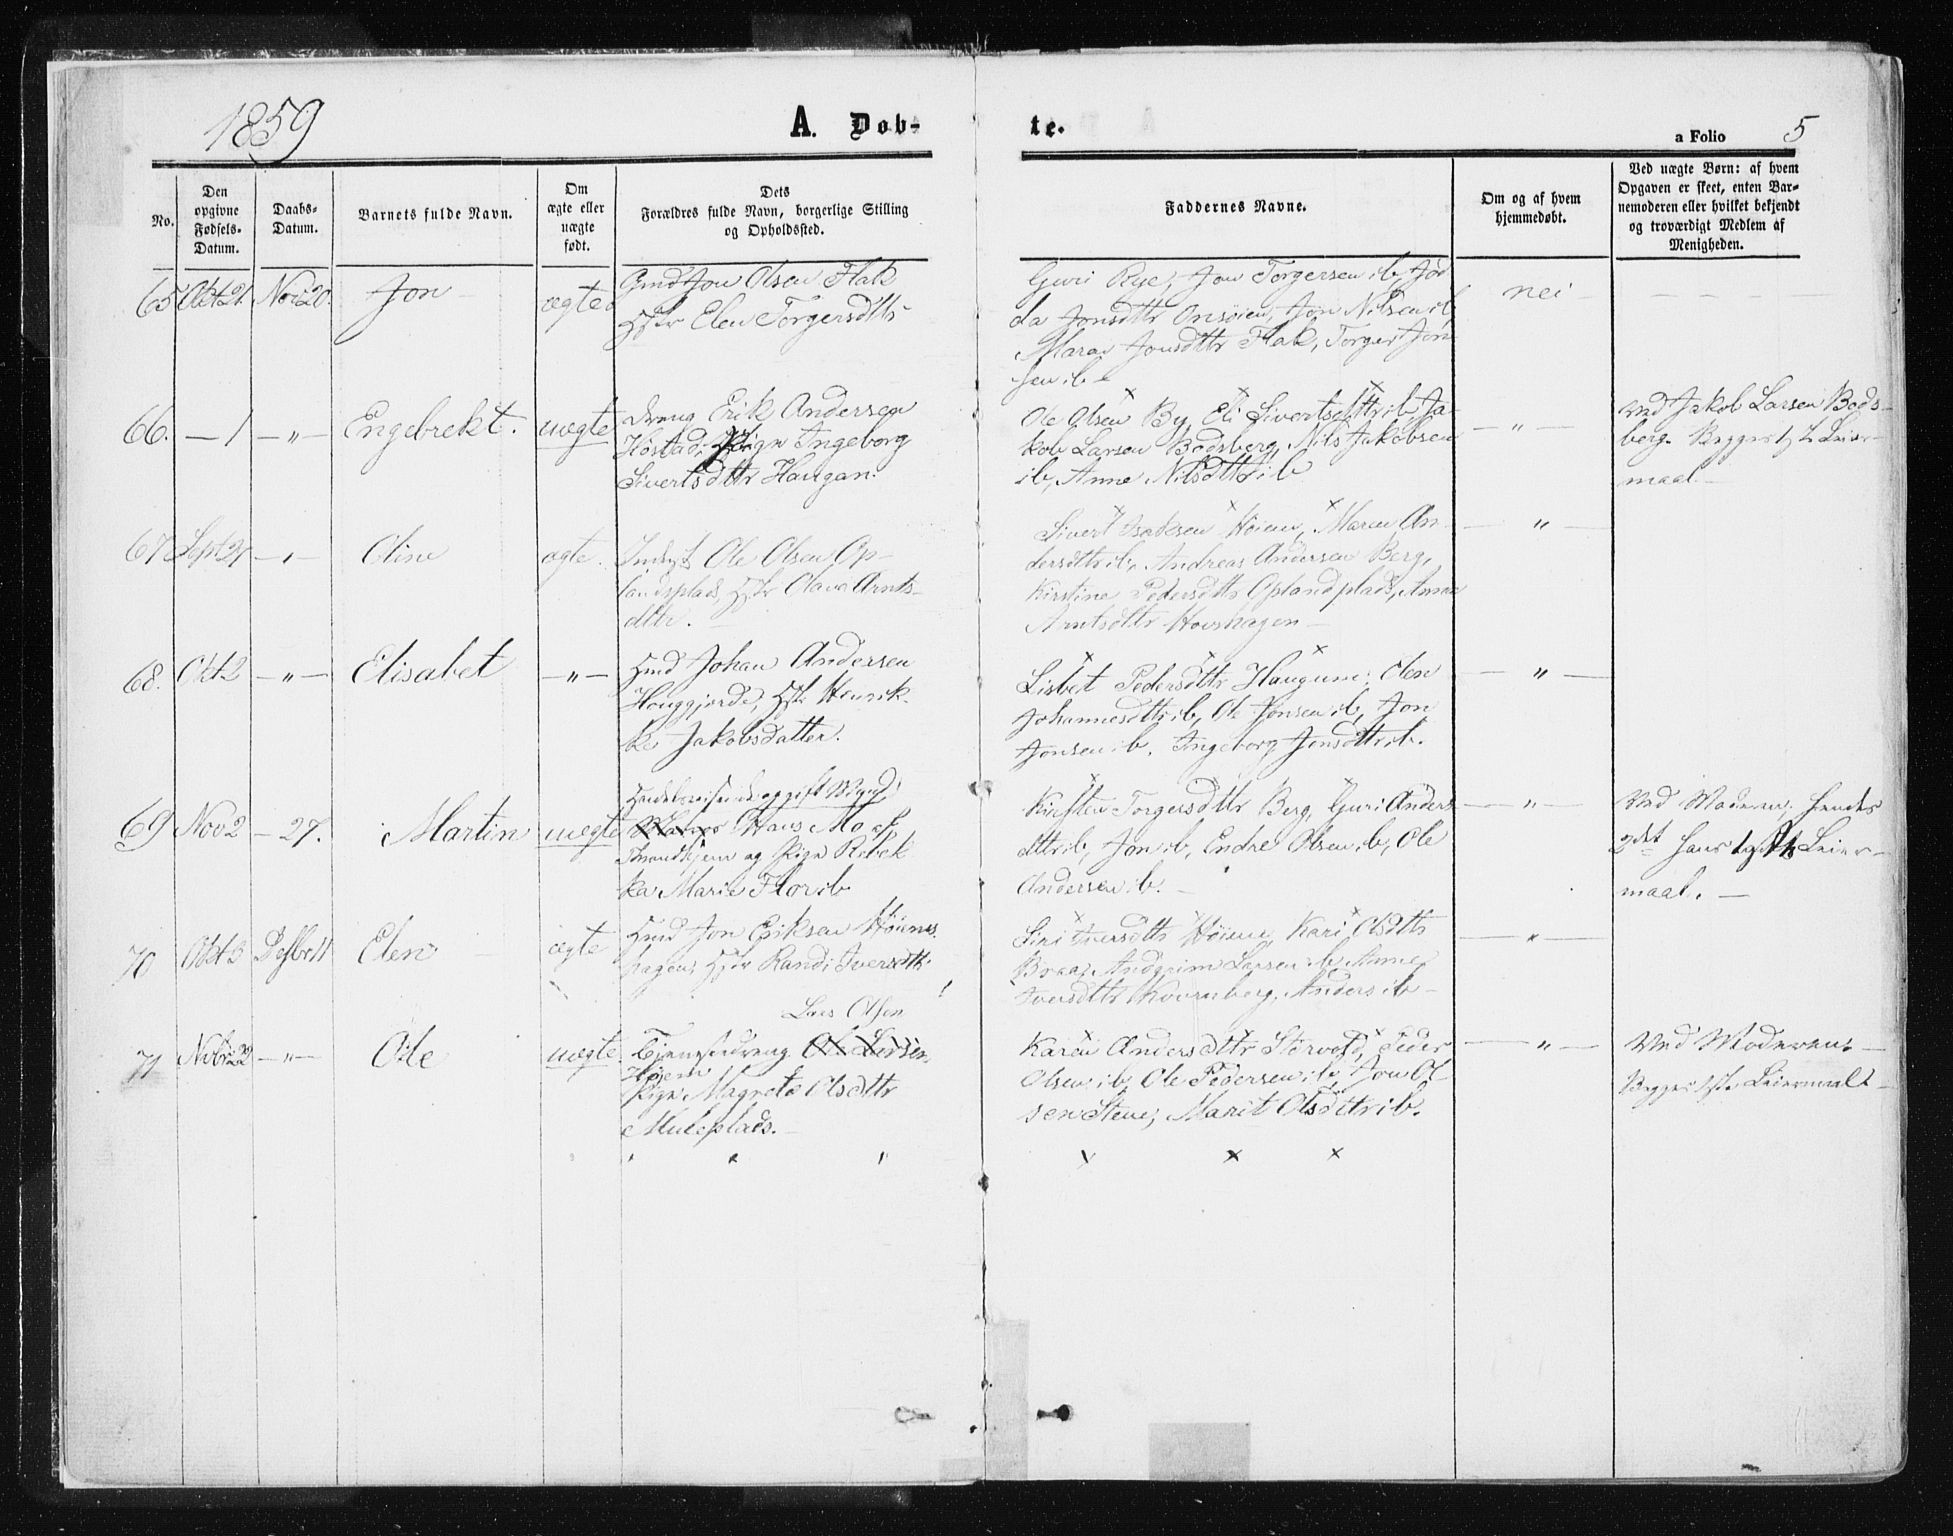 1859
A. Døb-
te.
a Folio 5
No.
Den
opgivne
Fødsels-
Datum.
Daabs-
Datum.
Barnets fulde Navn.
Om
ægte eller
uægte
født.
Dets
Forældres fulde Navn, borgerlige Stilling
og Opholdssted.
Faddernes Navne.
Om og af hvem
hjemmedøbt.
Ved uægte Børn: af hvem
Opgaven er skeet, enten Bar-
nemoderen eller hvilket bekjendt
og troværdigt Medlem af
Menigheden.
65 Okt 21. Nov 20. Jon ægte
Gmd Jon Olsen Flak
Hstr Elen Torgersdttr
Guri Rye, Jon Torgersen ib, Jør
da Jonsdttr Onsøien, Jon Nilsen ib,
Marit Jonsdttr Flak, Torger Jon-
sen ib
nei
66. — 1 — „ — Engebrekt. uægte
Dreng Erik Andersen
Kostad, Pige Ingeborg
Sivertsdttr Haugan.
Ole Olsen By, Eli Sivertsdttr ib, Ja-
kob Larsen Bodsberg, Nils Jakobsen
ib, Anne Nilsdttr ib
— „ —
ved Jakob Larsen Bods-
berg. Begges 1ste Leier-
maal.
67 Sept 27 — „ — Oline ægte.
Inds. Ole Olsen Op-
landsplads, Hstr Olava Arnts-
dttr.
Sivert Isaksen Høiem, Maren An-
dersdttr ib, Andreas Andersen Berg,
Kirstine Pedersdttr Oplandplads, Anne
Arntsdttr Hovshagen —
— „ —
68. Okt 2 — „ — Elisabet — „ —
Hmd Johan Andersen
Houggjerde, Hstr Henrik-
ke Jakobsdatter.
Lisbet Pedersdttr Haugum, Elen
Johannesdttr ib, Ole Jonsen ib, Jon
Jonsen ib. Ingeborg Jensdttr ib.
— „ —
69 Nov 2 — 27. Martin uægte
Hans Mo af
Throndhjem og Pige Rebek
ka Marie Flor ib
Kirsten Torgersdttr Berg, Guri Anders
dttr ib, Jon ib, Endre Olsen ib, Ole
Andersen ib. —
— „ —
Ved Moderen. Hendes
2det hans 1ste Leier-
maal. —
70 Okt 3 Desbr 11 Elen ægte
Hmd Jon Eriksen Høiems-
hagen, Hstr Randi Iversdttr
Siri Iversdttr Høiem, Kari Olsdttr
Braa, Andgrim Larsen ib, Anne
Iversdttr Kvernberg, Anders ib —
— „ —
71 Novbr 22 — „ — Ole uægte.
Lars Olsen
Tjenestedreng Ole Larsen,
Høiem
Pige Magrete Olsdttr
Muleplads. —
Karen Andersdttr Storvold, Peder
Olsen ib, Ole Pedersen ib, Jon Ol-
sen Stene, Marit Olsdttr ib.
— „ —
Ved Moderen. —
Begges 1ste Leiermaal —